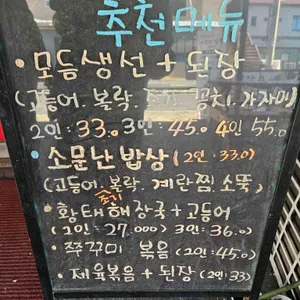 추천메뉴
· 모듬생선 + 된장
(고등어. 볼락. 꽁치. 가자미)
2인: 33.0 3인: 45.0 4인 55.0
· 소문난 밥상 (2인: 33.0)
(고등어. 볼락. 계란찜. 소뚝)
조기
· 황태해장국 + 고등어
(2인: 27,000) 3인: 36.0)
· 쭈꾸미 볶음 (2인: 45.0)
· 제육볶음 + 된장 (2인: 33)